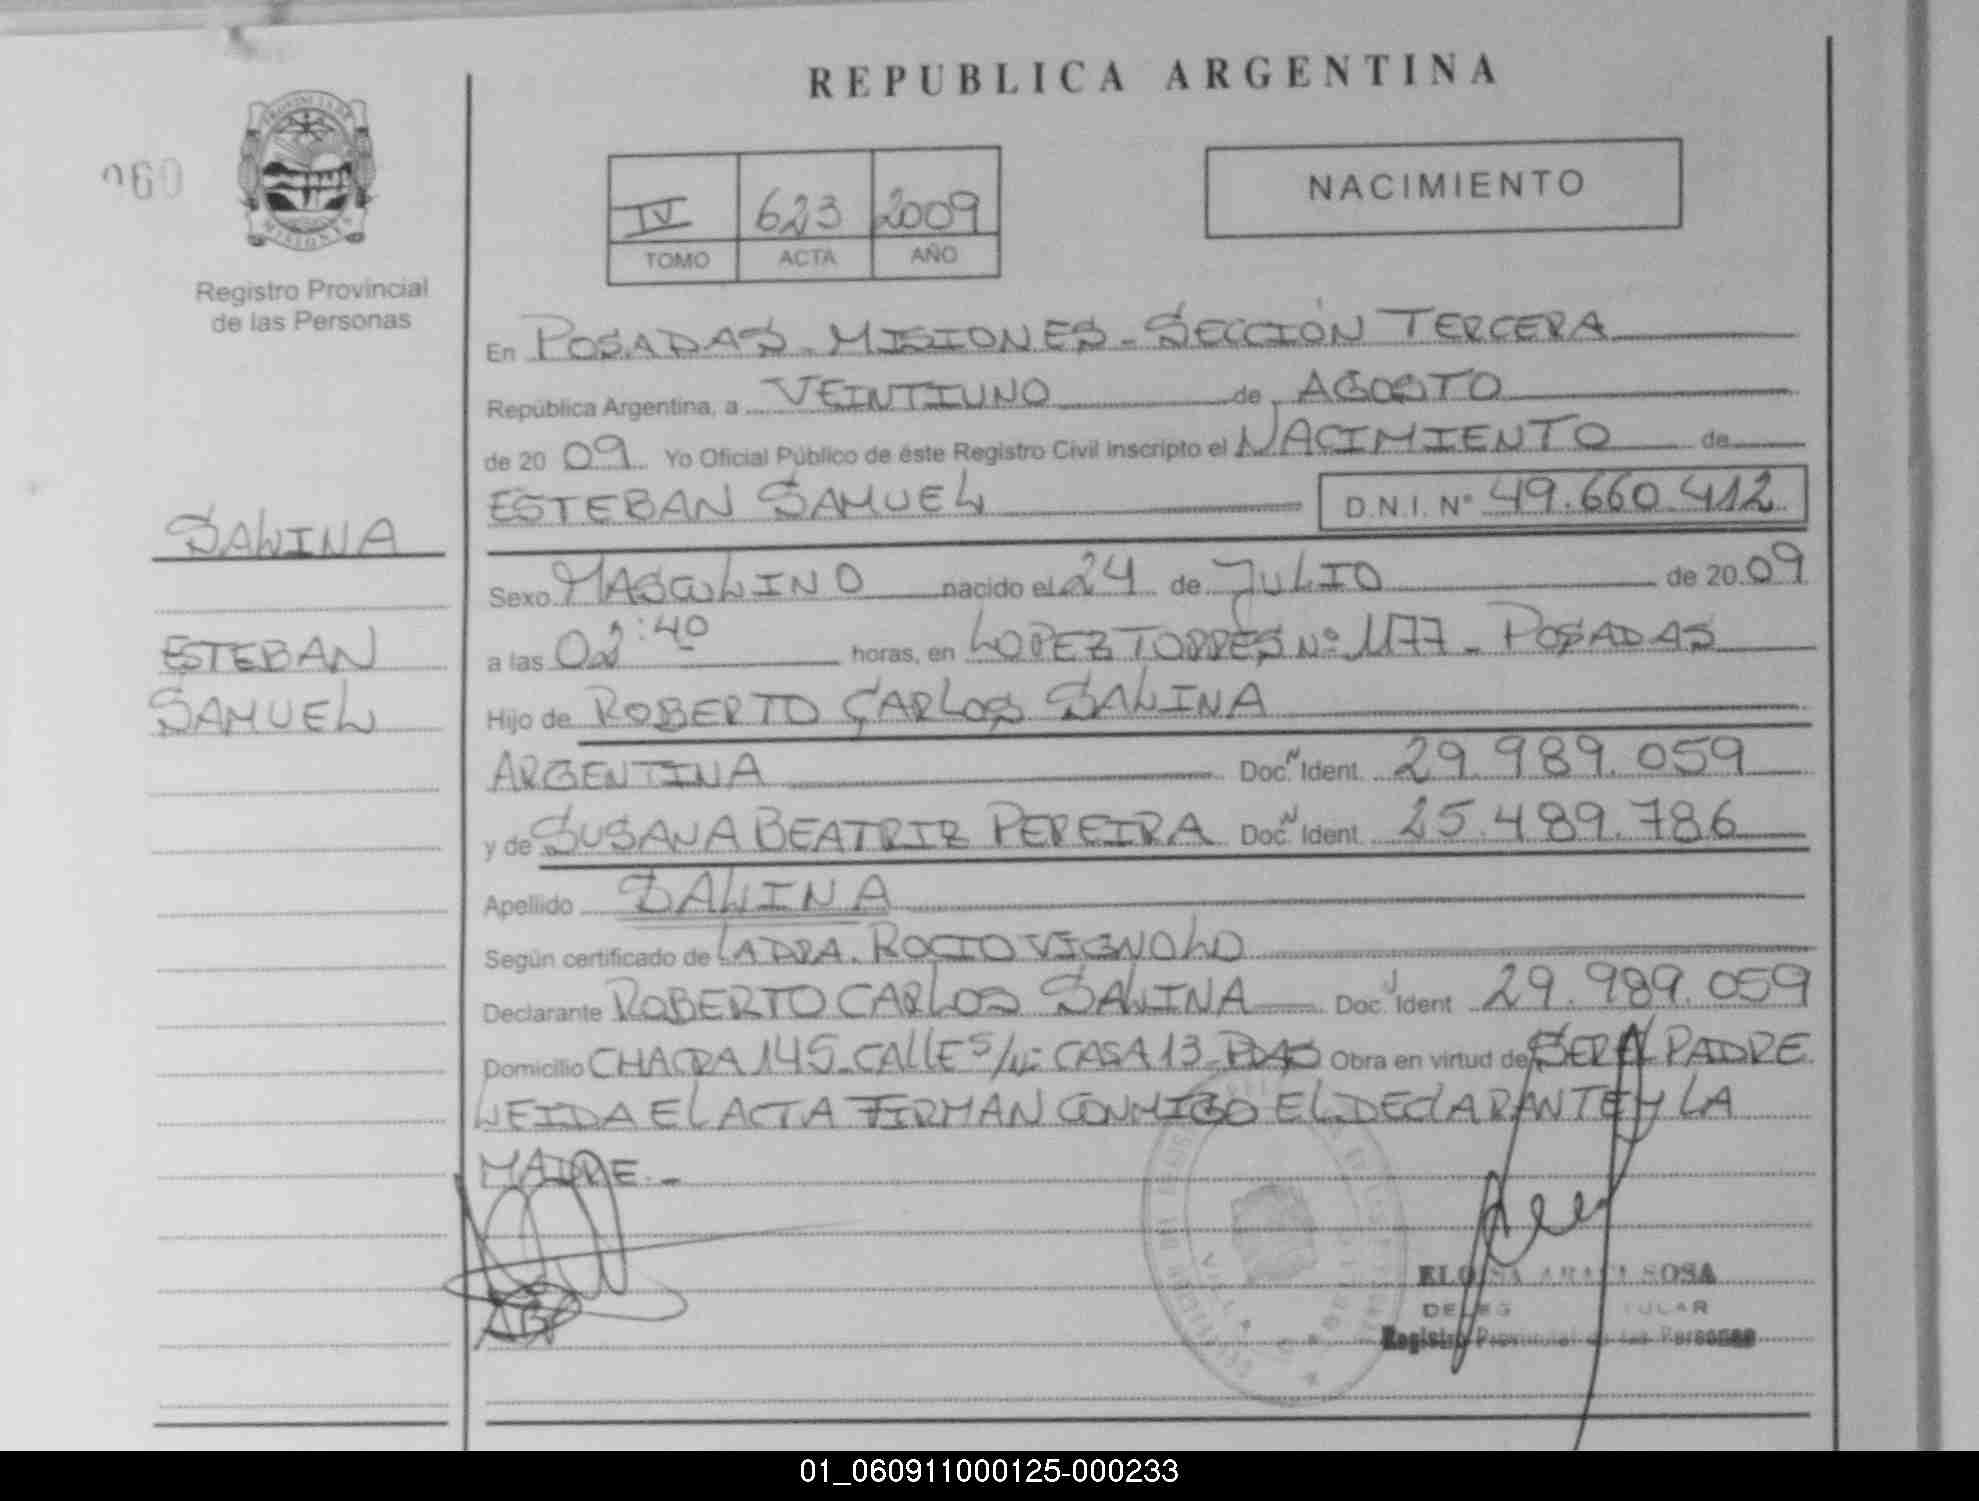 REPUBLICA ARGENTINA
060
PROVINCIA DE
MISIONES
Registro Provincial
de las Personas
IV 623 2009
TOMO ACTA AÑO
NACIMIENTO
En POSADAS - MISIONES - SECCIÓN TERCERA
República Argentina, a VEINTIUNO de AGOSTO
de 20 09 Yo Oficial Público de éste Registro Civil inscripto el NACIMIENTO de
ESTEBAN SAMUEL D.N.I. Nº 49.660.412
SALINA
ESTEBAN
SAMUEL
Sexo MASCULINO nacido el 24 de JULIO de 20 09
a las 02:40 horas, en LOPEZ TORRES Nº 1177 - POSADAS
Hijo de ROBERTO CARLOS SALINA
ARGENTINA Doc. N Ident. 29.989.059
y de SUSANA BEATRIZ PEREIRA Doc. N Ident. 25.489.786
Apellido SALINA
Según certificado de LA DRA. ROCIO VIGNOLO
Declarante ROBERTO CARLOS SALINA Doc. N Ident 29.989.059
Domicilio CHACRA 145 - CALLE S/N: CASA 13 - PDAS Obra en virtud de SER EL PADRE
LEIDA EL ACTA FIRMAN CONMIGO EL DECLARANTE Y LA
MADRE. -
SOSA
Registro Provincial de las Personas
01_060911000125-000233